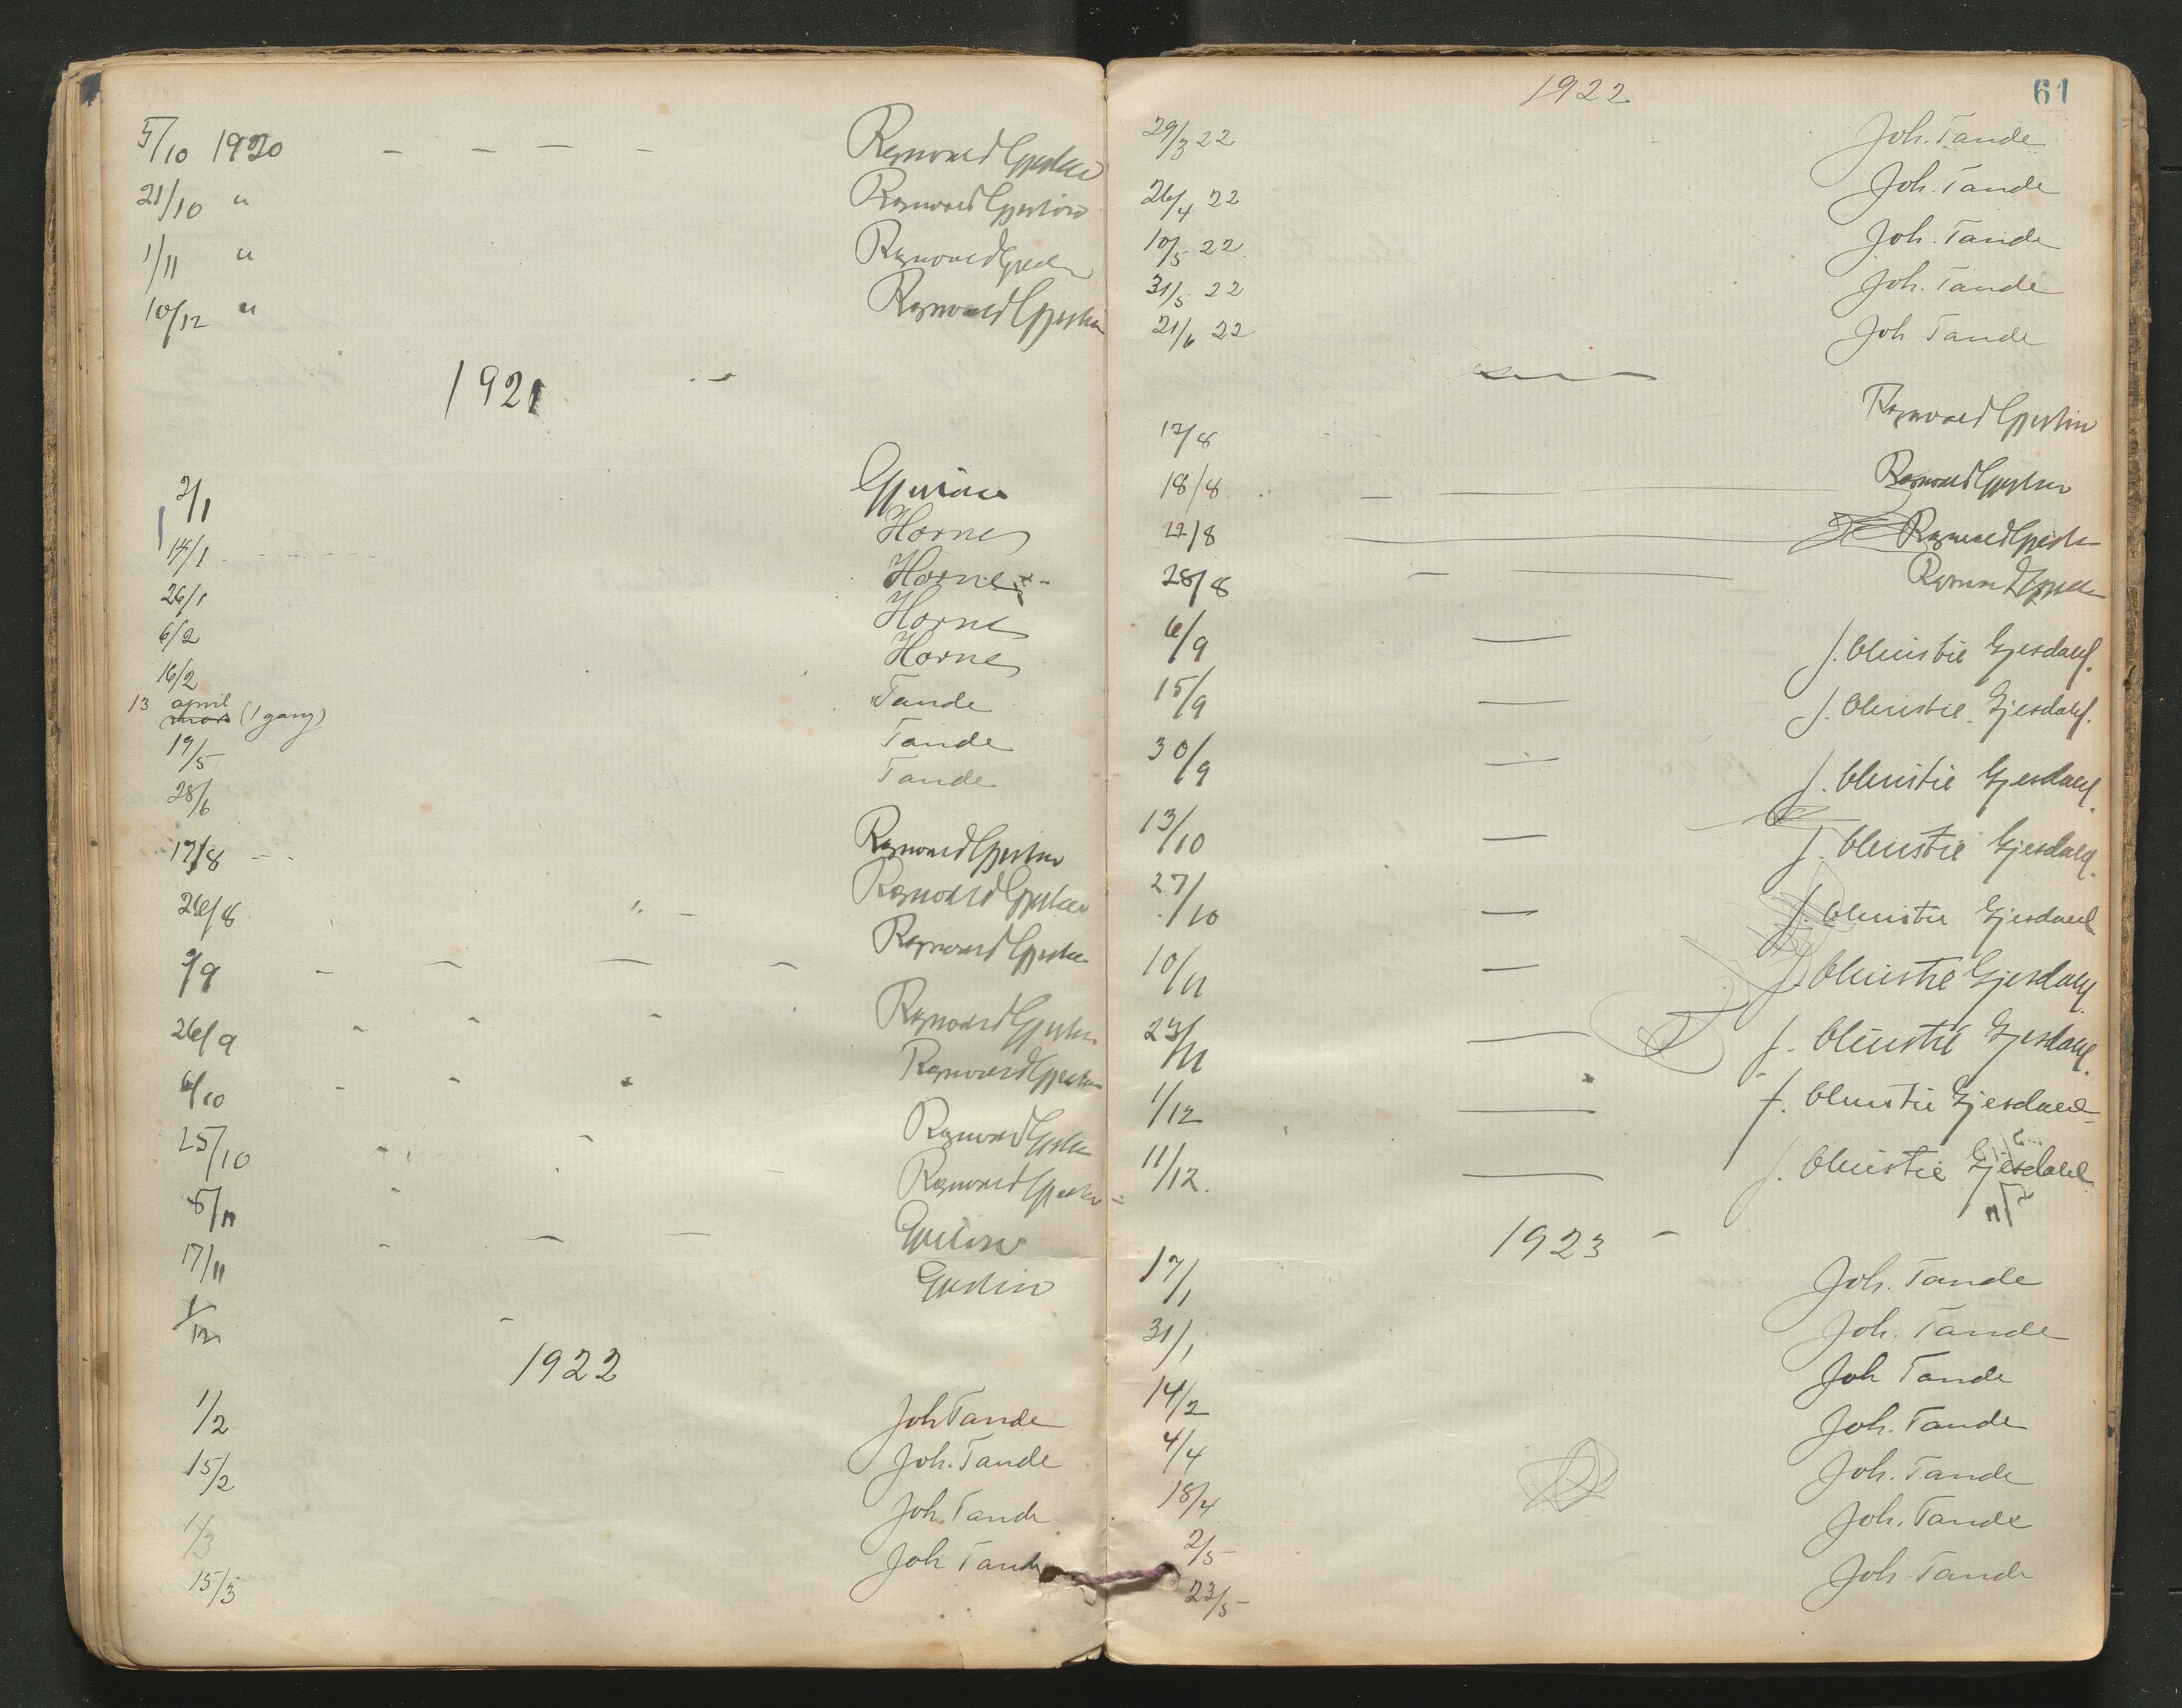 5/10 1920 - - - - Ragnvald Gjerløw
21/10 " Ragnvald Gjerløw
1/11 " Ragnvald Gjerløw
10/12 " Ragnvald Gjerløw
1921
2/1 Gjerløw
14/1 Hornes
26/1 Hornes
6/2 Hornes
16/2 Hornes
13 april (1 gang) Tande
19/5 Tande
28/6 Tande
17/8 Ragnvald Gjerløw
26/8 Ragnvald Gjerløw
9/9 - - - - Ragnvald Gjerløw
26/9 Ragnvald Gjerløw
6/10 Ragnvald Gjerløw
25/10 Ragnvald Gjerløw
8/11 Ragnvald Gjerløw
17/11 Gjerløw
1/12 Gjerløw
1922
1/2 Joh Tande
15/2 Joh. Tande
1/3 Joh. Tande
15/3 Joh Tande
61
1922
29/3 22 Joh. Tande
26/4 22 Joh. Tande
10/5 22. Joh. Tande
31/5 22 Joh. Tande
21/6 22 Joh Tande
17/8 Ragnvald Gjerløw
18/8 Ragnvald Gjerløw
22/8 Ragnvald Gjerløw
28/8 Ragnvald Gjerløw
6/9 — J. Christie Gjesdahl.
15/9 — J. Christie Gjesdahl.
30/9 — J. Christie Gjesdahl.
13/10 — J. Christie Gjesdahl.
27/10 — J. Christie Gjesdahl
10/11 — J. Christie Gjesdahl.
23/11 — J. Christie Gjesdahl.
1/12 — J. Christie Gjesdahl
11/12. — J. Christie Gjesdahl
1923
17/1 Joh. Tande
31/1 Joh. Tande
14/2 Joh Tande
4/4 Joh. Tande
18/4 Joh. Tande
2/5 Joh. Tande
23/5 Joh Tande